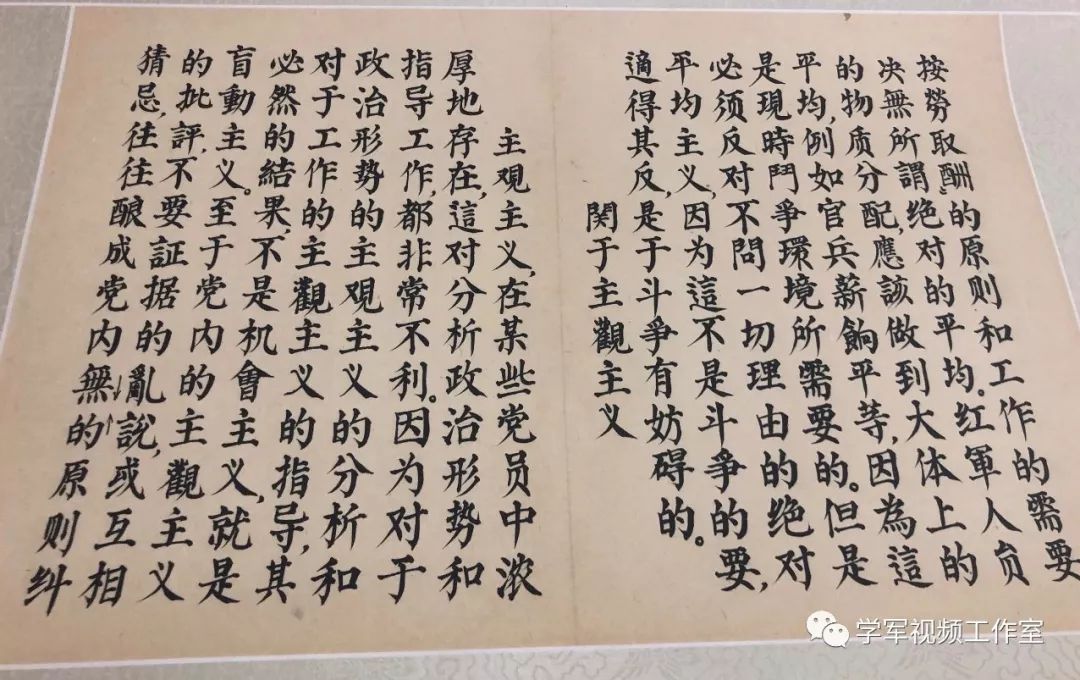 按勞取酬的原则和工作的需要
决無所謂绝对的平均。红軍人员
的物质分配,應該做到大体上的
平均,例如官兵薪餉平等,因為這
是現時鬥爭環境所需要的。但是
必须反对不問一切理由的绝对
平均主义,因为這不是斗爭的要,
適得其反,是于斗爭有妨碍的。
関于主觀主义
主观主义,在某些党员中浓
厚地存在,這对分析政治形势和
指导工作,都非常不利。因为对于
政治形势的主观主义的分析和
对于工作的主觀主义的指导,其
必然的結果,不是机會主义,就是
盲動主义。至于党内的主觀主义
的批評,不要証据的亂説,或互相
猜忌,往往酿成党内無的原则纠
学军视频工作室